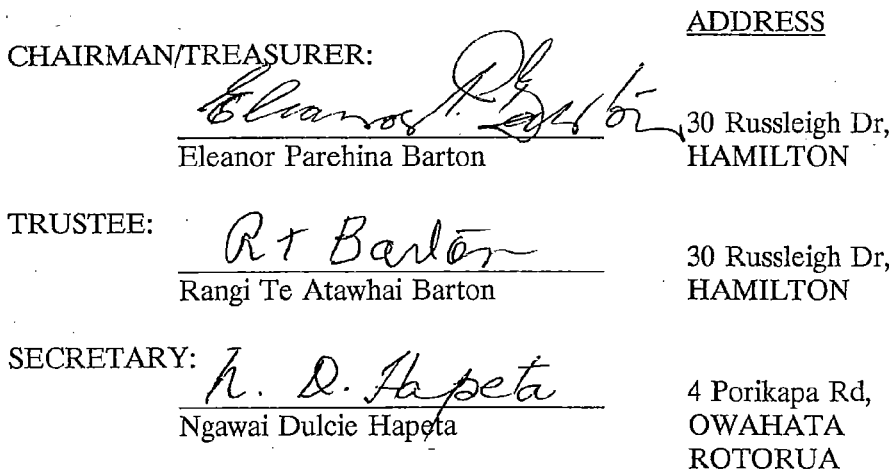 ADDRESS
CHAIRMAN/TREASURER:
Eleanor P. Barton
Eleanor Parehina Barton
30 Russleigh Dr,
HAMILTON
TRUSTEE:
R T Barton
Rangi Te Atawhai Barton
30 Russleigh Dr,
HAMILTON
SECRETARY:
N. D. Hapeta
Ngawai Dulcie Hapeta
4 Porikapa Rd,
OWAHATA
ROTORUA